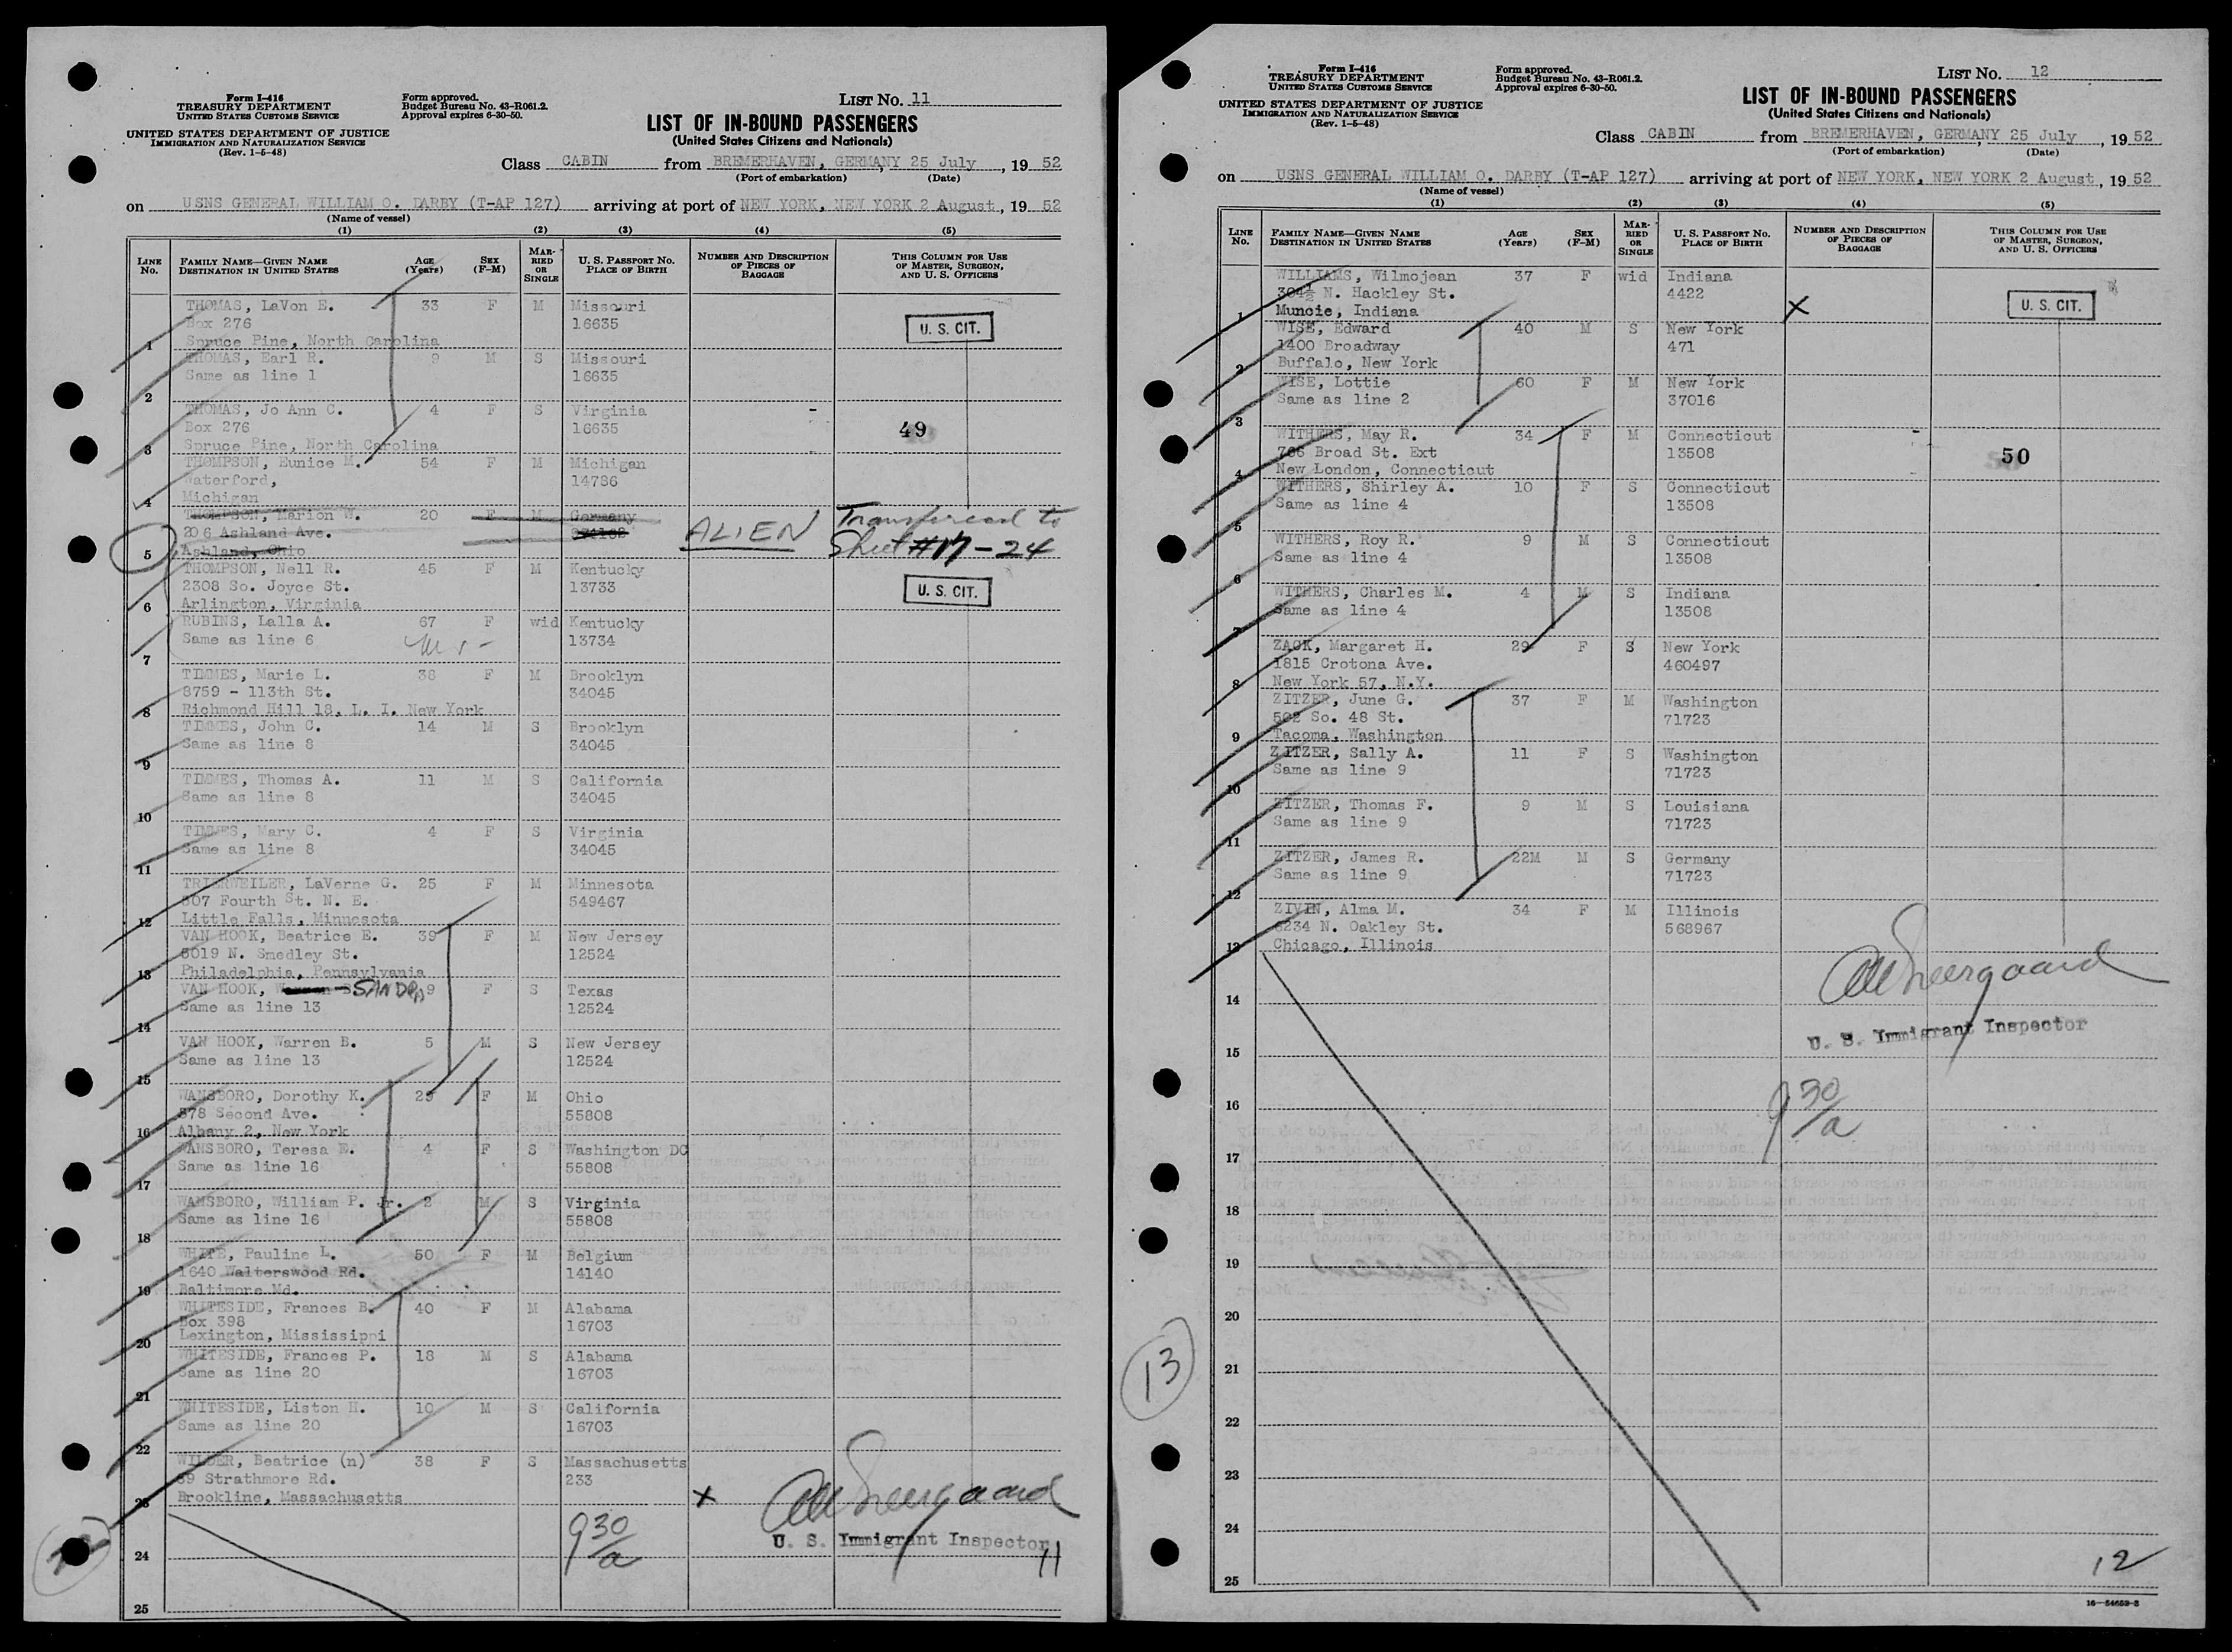 Form I-416
TREASURY DEPARTMENT
UNITED STATES CUSTOMS SERVICE
UNITED STATES DEPARTMENT OF JUSTICE
IMMIGRATION AND NATURALIZATION SERVICE
(Rev. 1-5-48)
Form approved.
Budget Bureau No. 43-R061.2.
Approval expires 6-30-50.
LIST No. 11
LIST OF IN-BOUND PASSENGERS
(United States Citizens and Nationals)
Class CABIN from BREMERHAVEN, GERMANY, 25 July, 19 52
(Port of embarkation) (Date)
on USNS GENERAL WILLIAM O. DARBY (T-AP 127) arriving at port of NEW YORK, NEW YORK 2 August, 19 52
(Name of vessel)
(1) (2) (3) (4) (5)
LINE No. FAMILY NAME—GIVEN NAME DESTINATION IN UNITED STATES AGE (Years) SEX (F-M) MARRIED OR SINGLE U. S. PASSPORT NO. PLACE OF BIRTH NUMBER AND DESCRIPTION OF PIECES OF BAGGAGE THIS COLUMN FOR USE OF MASTER, SURGEON, AND U. S. OFFICERS
THOMAS, LaVon E. 33 F M Missouri
Box 276 16635 U. S. CIT.
1 Spruce Pine, North Carolina
THOMAS, Earl R. 9 M S Missouri
Same as line 1 16635
2
THOMAS, Jo Ann C. 4 F S Virginia
Box 276 16635 49
3 Spruce Pine, North Carolina
THOMPSON, Eunice M. 54 F M Michigan
Waterford, 14786
4 Michigan
THOMPSON, Marion W. 20 F M Germany Transferred to
206 Ashland Ave. ALIEN
5 Ashland, Ohio Sheet #17-24
THOMPSON, Nell R. 45 F M Kentucky
2308 So. Joyce St. 13733 U. S. CIT.
6 Arlington, Virginia
RUBINS, Lalla A. 67 F wid Kentucky
Same as line 6 13734
7
TIMMES, Marie L. 38 F M Brooklyn
8759 - 113th St. 34045
8 Richmond Hill 18, L. I. New York
TIMMES, John C. 14 M S Brooklyn
Same as line 8 34045
9
TIMMES, Thomas A. 11 M S California
Same as line 8 34045
10
TIMMES, Mary C. 4 F S Virginia
Same as line 8 34045
11
TRIERWEILER, LaVerne G. 25 F M Minnesota
807 Fourth St. N. E. 549467
12 Little Falls, Minnesota
VAN HOOK, Beatrice E. 39 F M New Jersey
6019 N. Smedley St. 12524
13 Philadelphia, Pennsylvania
VAN HOOK, 9 F S Texas
Same as line 13 12524
14
VAN HOOK, Warren B. 5 M S New Jersey
Same as line 13 12524
15
WANSBORO, Dorothy K. 29 F M Ohio
878 Second Ave. 55808
16 Albany 2, New York
WANSBORO, Teresa E. 4 F S Washington DC
Same as line 16 55808
17
WANSBORO, William P. Jr. 2 M S Virginia
Same as line 16 55808
18
WHITE, Pauline L. 50 F M Belgium
1640 Walterswood Rd. 14140
19 Baltimore Md.
WHITESIDE, Frances B. 40 F M Alabama
Box 398 16703
20 Lexington, Mississippi
WHITESIDE, Frances P. 18 M S Alabama
Same as line 20 16703
21
WHITESIDE, Liston H. 10 M S California
Same as line 20 16703
22
WILDER, Beatrice (n) 38 F S Massachusetts
89 Strathmore Rd. 233
23 Brookline, Massachusetts X
9 30/a
U. S. Immigrant Inspector
24 11
25
Form I-416
TREASURY DEPARTMENT
UNITED STATES CUSTOMS SERVICE
UNITED STATES DEPARTMENT OF JUSTICE
IMMIGRATION AND NATURALIZATION SERVICE
(Rev. 1-5-48)
Form approved.
Budget Bureau No. 43-R061.2.
Approval expires 6-30-50.
LIST No. 12
LIST OF IN-BOUND PASSENGERS
(United States Citizens and Nationals)
Class CABIN from BREMERHAVEN, GERMANY, 25 July, 19 52
(Port of embarkation) (Date)
on USNS GENERAL WILLIAM O. DARBY (T-AP 127) arriving at port of NEW YORK, NEW YORK 2 August, 19 52
(Name of vessel)
(1) (2) (3) (4) (5)
LINE No. FAMILY NAME—GIVEN NAME DESTINATION IN UNITED STATES AGE (Years) SEX (F-M) MARRIED OR SINGLE U. S. PASSPORT NO. PLACE OF BIRTH NUMBER AND DESCRIPTION OF PIECES OF BAGGAGE THIS COLUMN FOR USE OF MASTER, SURGEON, AND U. S. OFFICERS
WILLIAMS, Wilmojean 37 F wid Indiana
304½ N. Hackley St. 4422 X U. S. CIT.
1 Muncie, Indiana
WISE, Edward 40 M S New York
1400 Broadway 471
2 Buffalo, New York
WISE, Lottie 60 F M New York
Same as line 2 37016
3
WITHERS, May R. 34 F M Connecticut
786 Broad St. Ext 13508 50
4 New London, Connecticut
WITHERS, Shirley A. 10 F S Connecticut
Same as line 4 13508
5
WITHERS, Roy R. 9 M S Connecticut
Same as line 4 13508
6
WITHERS, Charles M. 4 M S Indiana
Same as line 4 13508
7
ZACK, Margaret H. 29 F S New York
1815 Crotona Ave. 460497
8 New York 57, N.Y.
ZITZER, June G. 37 F M Washington
502 So. 48 St. 71723
9 Tacoma, Washington
ZITZER, Sally A. 11 F S Washington
Same as line 9 71723
10
ZITZER, Thomas F. 9 M S Louisiana
Same as line 9 71723
11
ZITZER, James R. 22M M S Germany
Same as line 9 71723
12
ZIVIN, Alma M. 34 F M Illinois
6234 N. Oakley St. 568967
13 Chicago, Illinois
14
U. S. Immigrant Inspector
15
9 30/a
16
17
18
19
20
13
21
22
23
24
12
25
16-54652-3